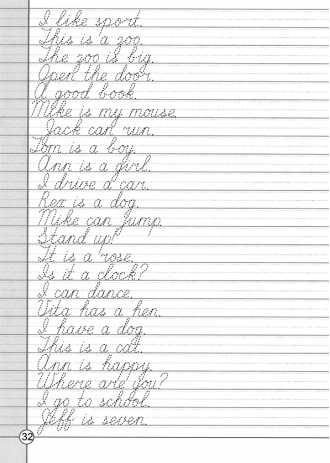 I like sport.
This is a zoo.
The zoo is big.
Open the door.
A good book.
Mike is my mouse.
Jack can run.
Tom is a boy.
Ann is a girl.
I drive a car.
Rex is a dog.
Mike can jump.
Stand up!
It is a rose.
Is it a clock?
I can dance.
Vita has a hen.
I have a dog.
This is a cat.
Ann is happy.
Where are you?
I go to school.
Jeff is seven.
32